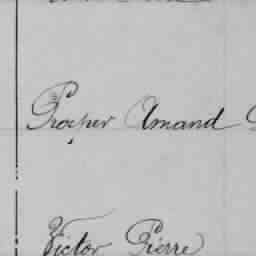 Prosper Amand
Victor Pierre